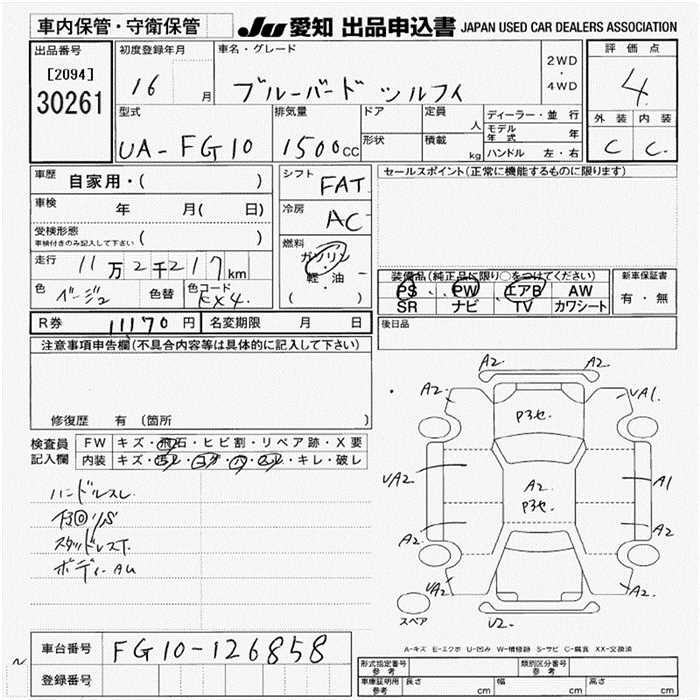 車内保管・守衛保管
JU 愛知 出品申込書 JAPAN USED CAR DEALERS ASSOCIATION
出品番号
[2094]
30261
初度登録年月
16 月
車名・グレード
ブルーバード シルフィ
2WD
・
4WD
評価点
4
外装 内装
C C
型式
UA-FG10
排気量
1500cc
ドア
形状
定員 人
積載 kg
ディーラー・並行
モデル年式 年
ハンドル 左・右
車歴 自家用・( )
車検 年 月( 日)
受検形態
車検付きのみ記入して下さい ( )
走行 11万2千217km
色 ベージュ 色替 色コード KX4.
シフト FAT
冷房 AC
燃料
ガソリン
・
軽・油
( )
セールスポイント(正常に機能するものに限ります)
装備品(純正品に限り○をつけてください)
PS PW エアB AW
SR ナビ TV カワシート
新車保証書
有・無
R券 11170円 名変期限 月 日
後日品
注意事項申告欄(不具合内容等は具体的に記入して下さい)
修復歴 有 (箇所 )
検査員記入欄
FW キズ・飛石・ヒビ割・リペア跡・X要
内装 キズ・汚レ・コゲ・ハ・ル・キレ・破レ
ハンドルスレ
スタッドレスT.
ボディーAU
A2. A2.
A2. UA1.
P3セ.
UA2 A1
A2.
P3セ.
A2. A2
UA2 A2.
U2-
スペア
A-キズ E-エクボ U-凹み W-補修跡 S-サビ C-腐食 XX-交換済
車台番号 FG10-126858
登録番号
形式指定番号 参考
類別区分番号 参考
車庫証明用 参考 長さ cm 幅 cm 高さ cm